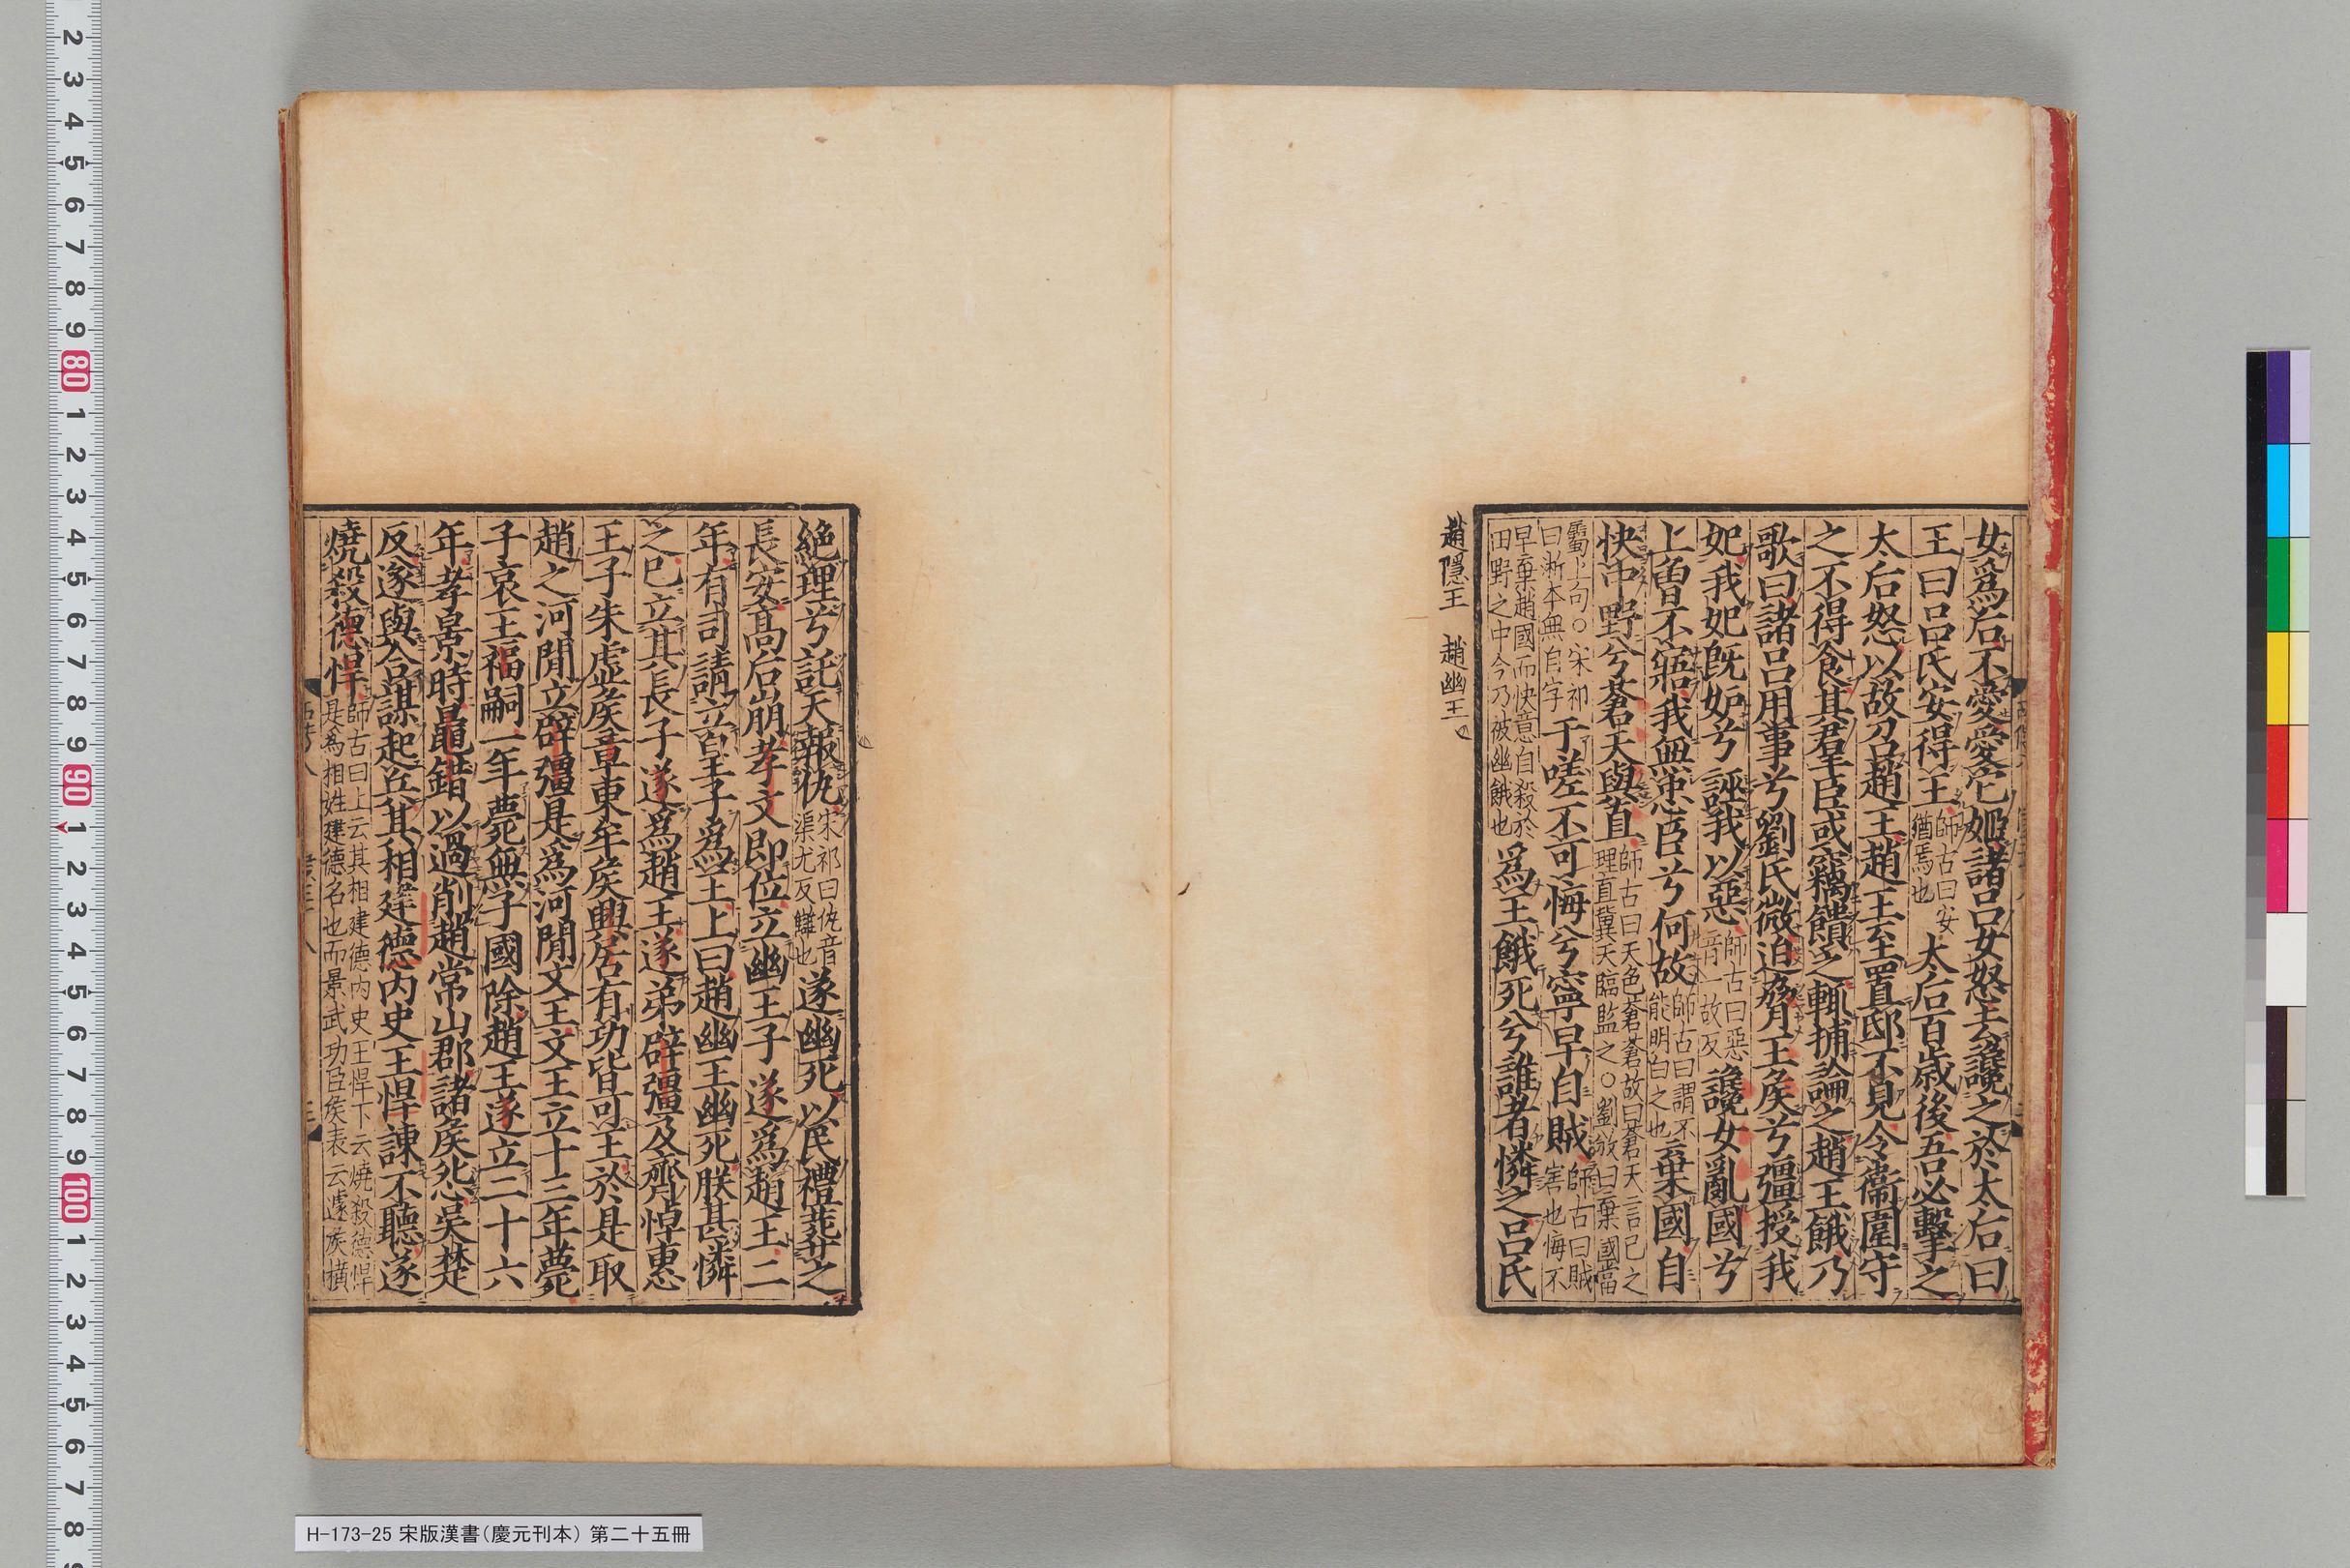 女爲后不愛愛它姬諸呂女怒去讒之於太后曰
王曰呂氏安得王師古曰安猶焉也太后百歲後吾必擊之
太后怒以故召趙王趙王至置邸不見令衞圍守
之不得食其羣臣或竊饋之輒捕論之趙王餓乃
歌曰諸呂用事兮劉氏微迫脅王侯兮彊授我
妃我妃既妒兮誣我以惡師古曰惡音一故反讒女亂國兮
上曾不寤我無忠臣兮何故師古曰謂不能明白之也棄國自
快中野兮蒼天與直師古曰天色蒼蒼故曰蒼天言己之理直冀天臨監之○劉攽曰棄國當
屬上句○宋祁曰浙本無自字于嗟不可悔兮寧早自賊師古曰賊害也悔不
早棄趙國而快意自殺於田野之中今乃被幽餓也爲王餓死兮誰者憐之呂氏
趙隱王 趙幽王
絶理兮託天報仇宋祁曰仇音渠尤反讎也遂幽死以民禮葬之
長安高后崩孝文即位立幽王子遂爲趙王二
年有司請立皇子爲王上曰趙幽王幽死朕甚憐
之已立其長子遂爲趙王遂弟辟彊及齊悼惠
王子朱虛侯章東牟侯興居有功皆可王於是取
趙之河間立辟彊是爲河間文王文王立十三年薨
子哀王福嗣一年薨無子國除趙王遂立二十六
年孝景時鼂錯以過削趙常山郡諸侯怨吳楚
反遂與合謀起兵其相建德内史王悍諫不聽遂
燒殺德悍師古曰上云其相建德内史王悍下云燒殺德悍是爲相姓建德名也而景武功臣侯表云遽侯橫
H-173-25 宋版漢書(慶元刊本) 第二十五冊